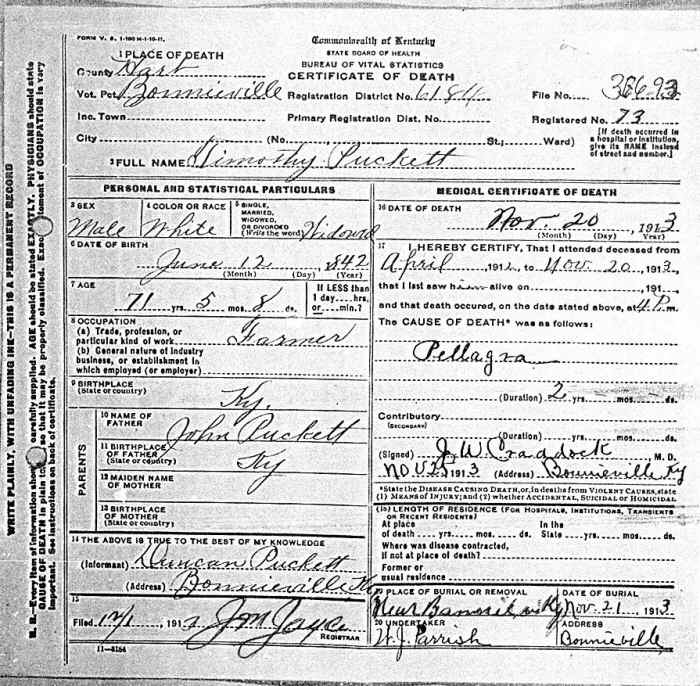 FORM V. S. 1-100 M-1-10-11.
Commonwealth of Kentucky
STATE BOARD OF HEALTH
BUREAU OF VITAL STATISTICS
CERTIFICATE OF DEATH
1 PLACE OF DEATH
County Hart
Vot. Pct. Bonnieville Registration District No. 6184 File No. 36693
Inc. Town Primary Registration Dist. No. Registered No. 73
City (No. St.; Ward)
[If death occurred in
a hospital or institution,
give its NAME instead
of street and number.]
2 FULL NAME Timothy Puckett
PERSONAL AND STATISTICAL PARTICULARS
3 SEX Male
4 COLOR OR RACE White
5 SINGLE, MARRIED, WIDOWED, OR DIVORCED (Write the word) Widowed
6 DATE OF BIRTH
June 12, 1842
(Month) (Day) (Year)
7 AGE
71 yrs. 5 mos. 8 ds.
If LESS than
1 day....hrs.
or....min.?
8 OCCUPATION
(a) Trade, profession, or
particular kind of work Farmer
(b) General nature of industry
business, or establishment in
which employed (or employer)
9 BIRTHPLACE
(State or country) Ky.
PARENTS
10 NAME OF
FATHER John Puckett
11 BIRTHPLACE
OF FATHER
(State or country) Ky
12 MAIDEN NAME
OF MOTHER
13 BIRTHPLACE
OF MOTHER
(State or country)
14 THE ABOVE IS TRUE TO THE BEST OF MY KNOWLEDGE
(Informant) Duncan Puckett
(Address) Bonnieville Ky
15
Filed 12/1, 191
REGISTRAR
11-3184
MEDICAL CERTIFICATE OF DEATH
16 DATE OF DEATH
Nov. 20, 1913
(Month) (Day) (Year)
17 I HEREBY CERTIFY, That I attended deceased from
April 191 , to Nov. 20, 1913,
that I last saw him alive on , 191 ,
and that death occured, on the date stated above, at 4 P.m.
The CAUSE OF DEATH* was as follows:
Pellagra
(Duration) 2 yrs. mos. ds.
Contributory
(SECONDARY)
(Duration) yrs. mos. ds.
(Signed) J. W. Craddock M. D.
Nov 25 1913 (Address) Bonnieville Ky
*State the DISEASE CAUSING DEATH, or, in deaths from VIOLENT CAUSES, state
(1) MEANS OF INJURY; and (2) whether ACCIDENTAL, SUICIDAL or HOMICIDAL
(18) LENGTH OF RESIDENCE (FOR HOSPITALS, INSTITUTIONS, TRANSIENTS
OR RECENT RESIDENTS)
At place In the
of death yrs. mos. ds. State yrs. mos. ds.
Where was disease contracted,
if not at place of death?
Former or
usual residence
19 PLACE OF BURIAL OR REMOVAL
Near Ky
DATE OF BURIAL
Nov. 21, 1913
20 UNDERTAKER
W. J. Parrish
ADDRESS
Bonnieville
WRITE PLAINLY, WITH UNFADING INK—THIS IS A PERMANENT RECORD
N. B.—Every item of information should carefully supplied. AGE should be stated EXACTLY. PHYSICIANS should state
CAUSE OF DEATH in plain so that it may be properly classified. Exact statement of OCCUPATION is very
important. See instructions on back of certificate.